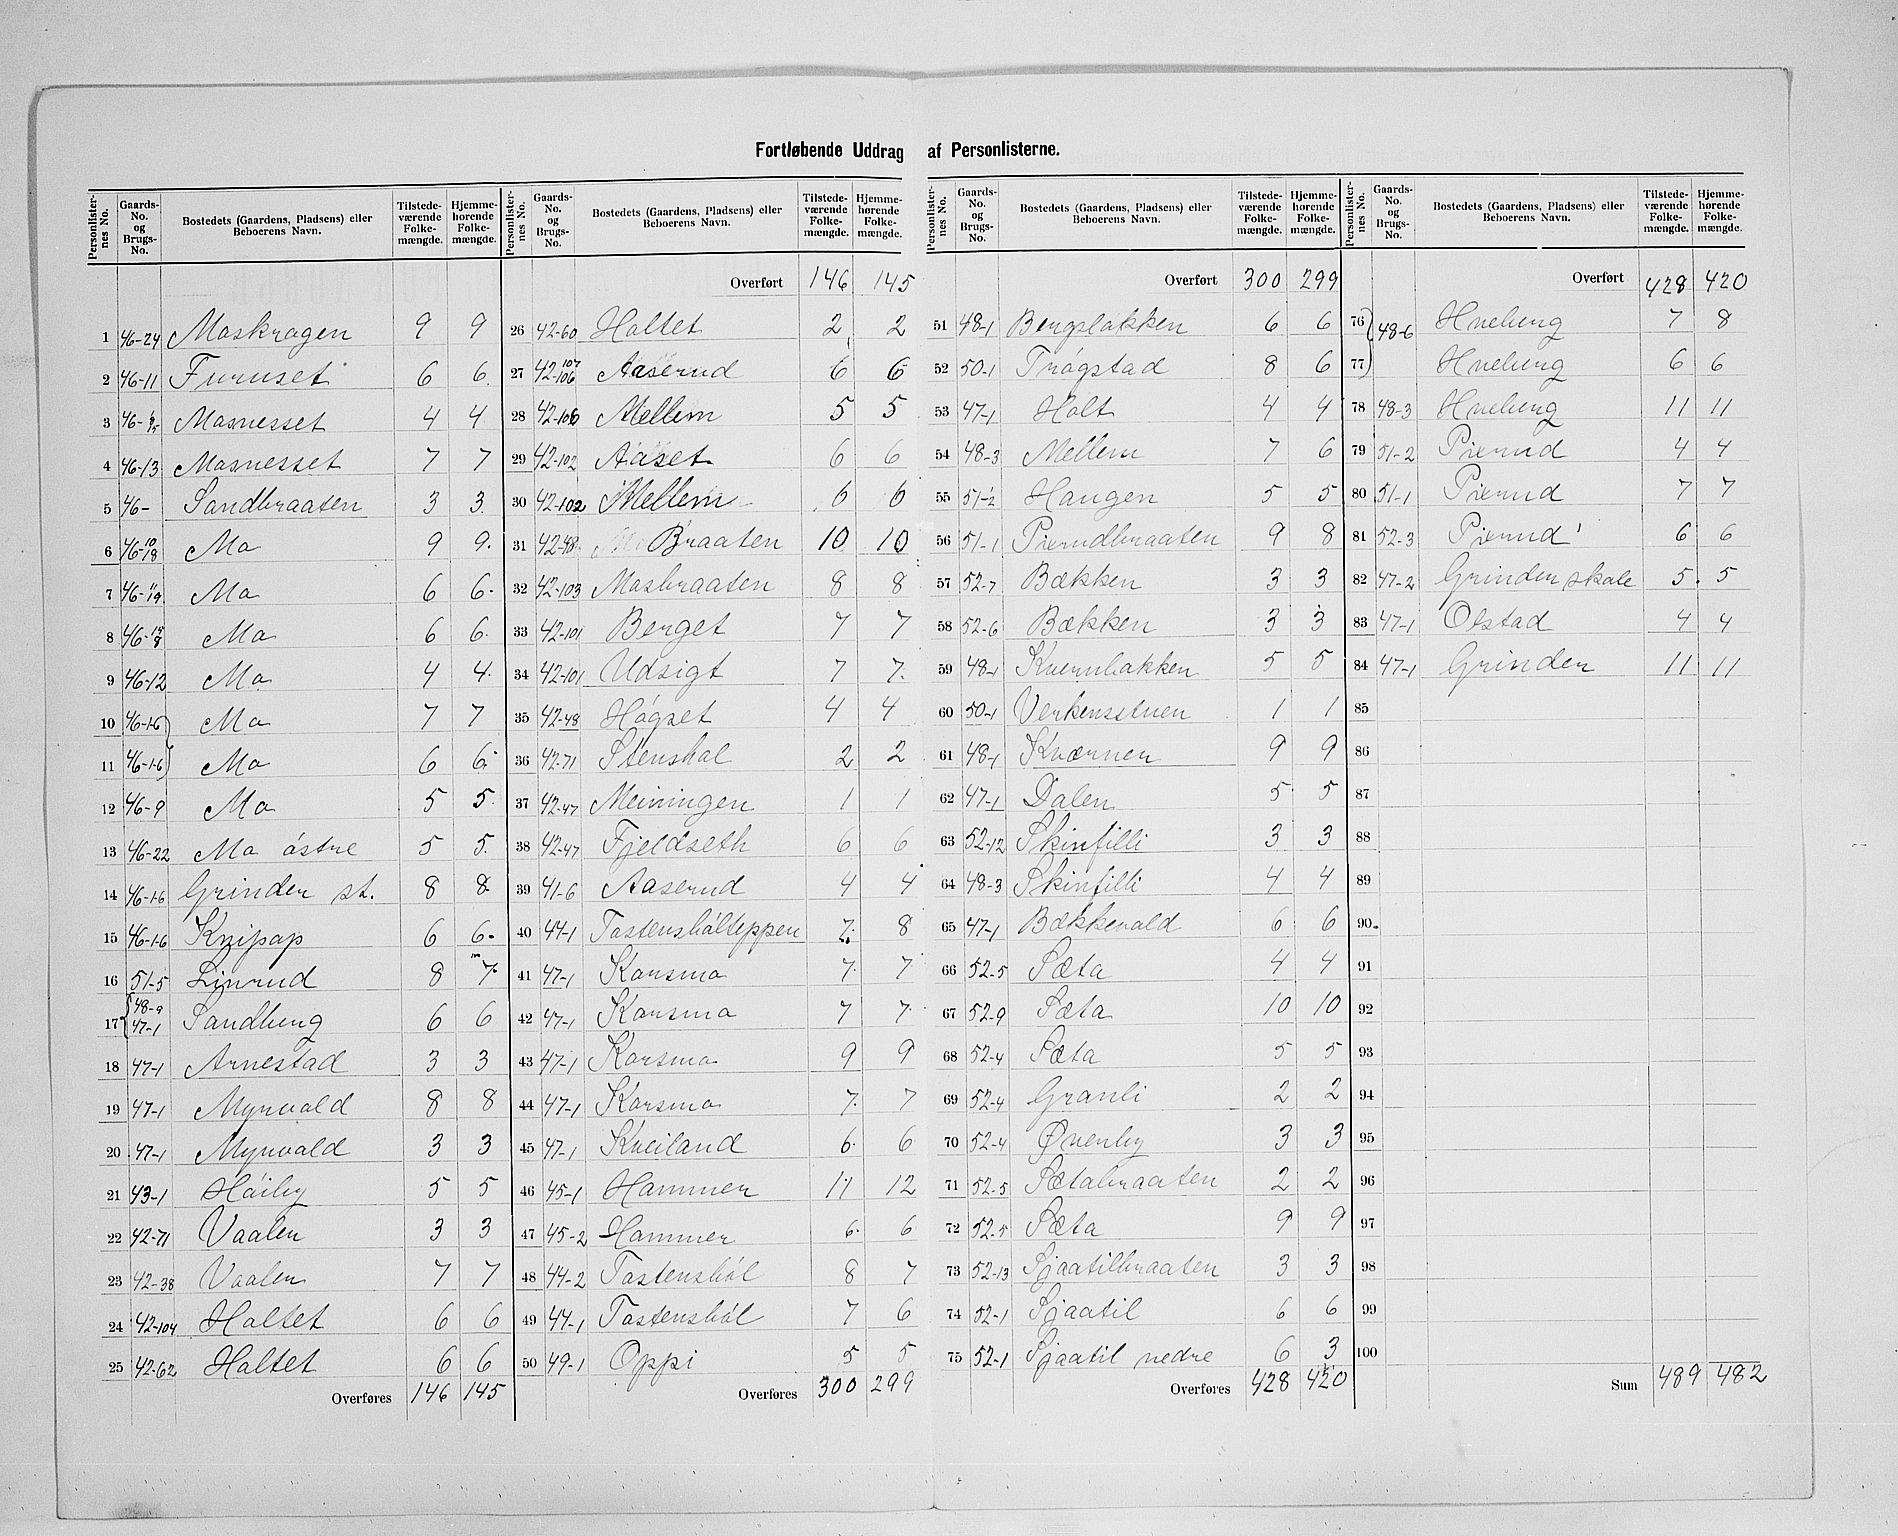 Fortløbende Uddrag af Personlisterne.
Personlisternes No. Gaards-No. og Brugs-No. Bostedets (Gaardens, Pladsens) eller Beboerens Navn. Tilstedeværende Folkemængde. Hjemmehørende Folkemængde.
1 46-24 Moskragen 9 9
2 46-11 Furuset 6 6
3 46- Mosnesset 4 4
4 46-13 Mosnesset 7 7
5 46- Sandbraaten 3 3
6 46-10/18 Mo 9 9
7 46- Mo 6 6
8 46- Mo 6 6
9 46-12 Mo 4 4
10 46-1-6 Mo 7 7
11 46-1-6 Mo 6 6
12 46-9 Mo 5 5
13 46-22 Mo östre 5 5
14 46-1-6 Grinder st. 8 8
15 46-1-6 Knipap 6 6
16 51-5 Linrud 8 7
17 48-9 47-1 Sandberg 6 6
18 47-1 Arnestad 3 3
19 47-1 Myrvold 8 8
20 47-1 Myrvold 3 3
21 43-1 Höiby 5 5
22 42-71 Vaalen 3 3
23 42-38 Vaalen 7 7
24 42-104 Holtet 6 6
25 42-62 Holtet 6 6
Overføres 146 145
Personlisternes No. Gaards-No. og Brugs-No. Bostedets (Gaardens, Pladsens) eller Beboerens Navn. Tilstedeværende Folkemængde. Hjemmehørende Folkemængde.
Overført 146 145
26 42-60 Holtet 2 2
27 42-107/106 Aaserud 6 6
28 42-106 Mellem 5 5
29 42-102 Aaset 6 6
30 42-102 Mellem 6 6
31 42-48 Braaten 10 10
32 42-103 Mosbraaten 8 8
33 42-101 Berget 7 7
34 42-101 Udsigt 7 7
35 42-48 Högset 4 4
36 42-71 Stenshol 2 2
37 42-47 Meiningen 1 1
38 42-47 Fjeldseth 6 6
39 41-6 Aaserud 4 4
40 44-1 Tostensbölteppen 7 8
41 47-1 Korsmo 7 7
42 47-1 Korsmo 7 7
43 47-1 Korsmo 9 9
44 47-1 Korsmo 7 7
45 47-1 Kveiland 6 6
46 45-1 Hammer 11 12
47 45-2 Hammer 6 6
48 44-2 Tostensböl 8 7
49 44-1 Tostensböl 7 6
50 49-1 Oppi 5 5
Overføres 300 299
Personlisternes No. Gaards-No. og Brugs-No. Bostedets (Gaardens, Pladsens) eller Beboerens Navn. Tilstedeværende Folkemængde. Hjemmehørende Folkemængde.
Overført 300 299
51 48-1 Bergslokken 6 6
52 50-1 Trögstad 8 6
53 47-1 Holt 4 4
54 48-3 Mellem 7 6
55 51-2 Haugen 5 5
56 51-1 Pierudbraaten 9 8
57 52-7 Bækken 3 3
58 52-6 Bækken 3 3
59 48-1 Kvernbakken 5 5
60 50-1 Verkensstuen 1 1
61 48-1 Kværnen 9 9
62 47-1 Dalen 5 5
63 52-12 Skinfilli 3 3
64 48-3 Skinfilli 4 4
65 47-1 Bækkevold 6 6
66 52-5 Sæta 4 4
67 52-9 Sæta 10 10
68 52-4 Sæta 5 5
69 52-4 Granli 2 2
70 52-4 Øverby 3 3
71 52-5 Sætabraaten 2 2
72 52-5 Sæta 9 9
73 52-13 Sjaatilbraaten 3 3
74 52-1 Sjaatil 6 6
75 52-1 Sjaatil nedre 6 3
Overføres 428 420
Personlisternes No. Gaards-No. og Brugs-No. Bostedets (Gaardens, Pladsens) eller Beboerens Navn. Tilstedeværende Folkemængde. Hjemmehørende Folkemængde.
Overført 428 420
76 48-6 Hveberg 7 8
77 Hveberg 6 6
78 48-3 Hveberg 11 11
79 51-2 Pierud 4 4
80 51-1 Pierud 7 7
81 52-3 Pierud 6 6
82 47-2 Grinder skole 5 5
83 47-1 Olstad 4 4
84 47-1 Grinder 11 11
85
86
87
88
89
90
91
92
93
94
95
96
97
98
99
100
Sum 489 482